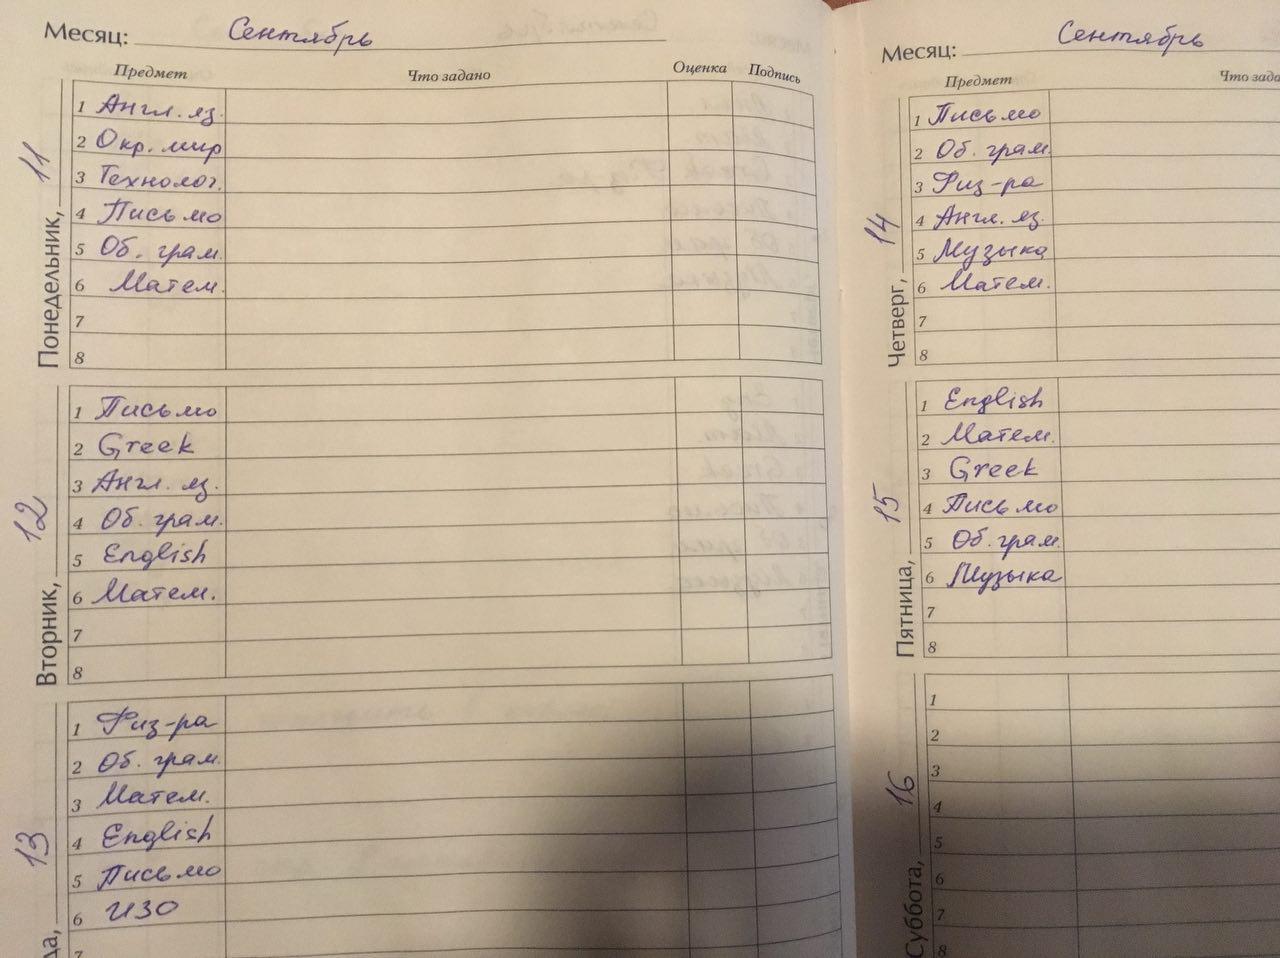 Месяц: Сентябрь
Предмет Что задано Оценка Подпись
Понедельник, 11
1 Англ. яз.
2 Окр. мир
3 Технолог.
4 Письмо
5 Об. грам.
6 Матем.
7
8
Вторник, 12
1 Письмо
2 Greek
3 Англ. яз.
4 Об. грам.
5 English
6 Матем.
7
8
да, 13
1 Физ-ра
2 Об. грам.
3 Матем.
4 English
5 Письмо
6 ИЗО
7
Месяц: Сентябрь
Предмет Что зада
Четверг, 14
1 Письмо
2 Об. грам.
3 Физ-ра
4 Англ. яз.
5 Музыка
6 Матем.
7
8
Пятница, 15
1 English
2 Матем.
3 Greek
4 Письмо
5 Об. грам.
6 Музыка
7
8
Суббота, 16
1
2
3
4
5
6
7
8